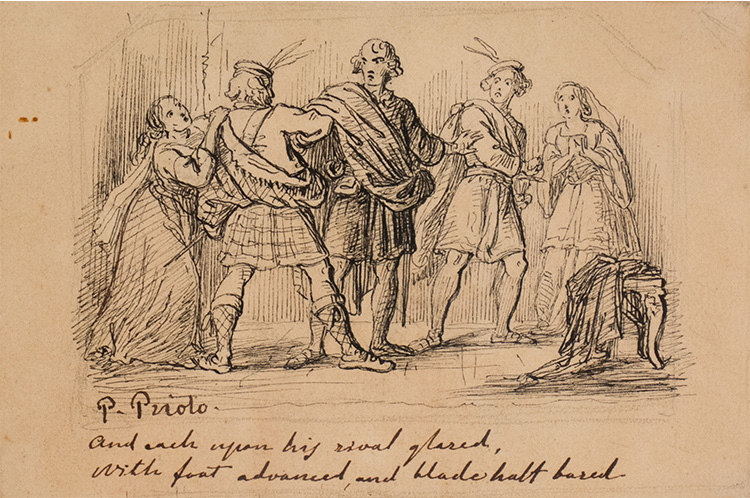 P. Priolo.
And each upon his rival glared,
With foot advanced, and blade half bared